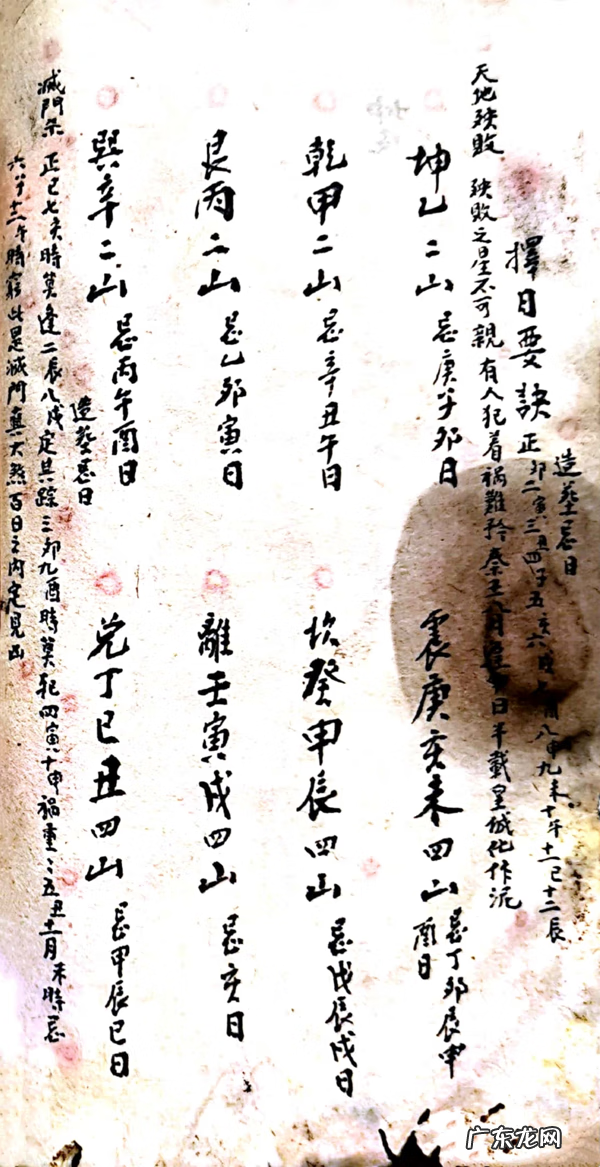 擇日要訣
造葬忌日
正卯二寅三丑四子五亥六戌七酉八申九未十午十一巳十二辰
天地殃敗 殃敗之星不可親 有人犯着禍難 日半載皇城化作泥
坤乙二山 忌庚 卯日
震庚亥未四山 忌丁卯辰申酉日
乾甲二山 忌辛丑午日
坎癸申辰四山 忌戊辰戌日
艮丙二山 忌乙卯寅日
離壬寅戌四山 忌亥日
巽辛二山 忌丙午酉日
兌丁巳丑四山 忌甲辰巳日
造葬忌日
滅門 正巳七亥時莫逢二辰八戌定其踪三卯九酉時莫犯四寅十申禍重〻五丑十一月未時忌
六子十二午時 此是滅門真大煞百日之內定見凶
广东龙网